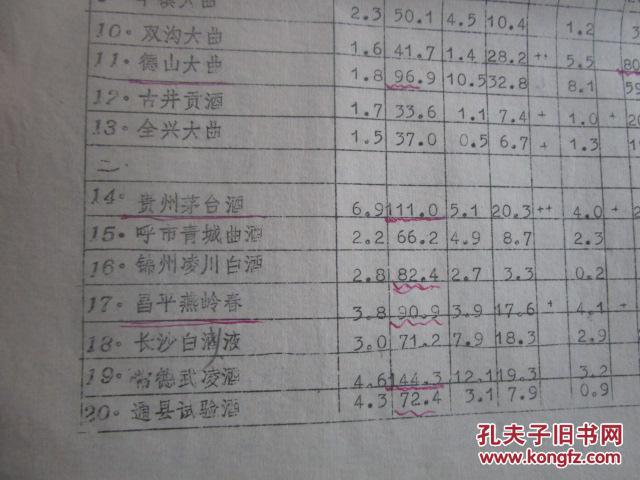 大曲 2.3 50.1 4.5 10.4 1.2 3
10. 双沟大曲 1.6 41.7 1.4 28.2 ++ 5.5 80
11. 德山大曲 1.8 96.9 10.5 32.8 8.1 59
12. 古井贡酒 1.7 33.6 1.1 7.4 + 1.0 + 20
13. 全兴大曲 1.5 37.0 0.5 6.7 + 1.3 1
二.
14. 贵州茅台酒 6.9 111.0 5.1 20.3 ++ 4.0 + 2
15. 呼市青城曲酒 2.2 66.2 4.9 8.7 2.3
16. 锦州凌川白酒 2.8 82.4 2.7 3.3 0.2
17. 昌平燕岭春 3.8 90.9 3.9 17.6 + 4.1 +
18. 长沙白液 3.0 71.2 7.9 18.3 2.9
19. 常德武凌酒 4.6 144.3 12.1 19.3 3.2
20. 通县试验酒 4.3 72.4 3.1 7.9 0.9
孔夫子旧书网
www.kongfz.com